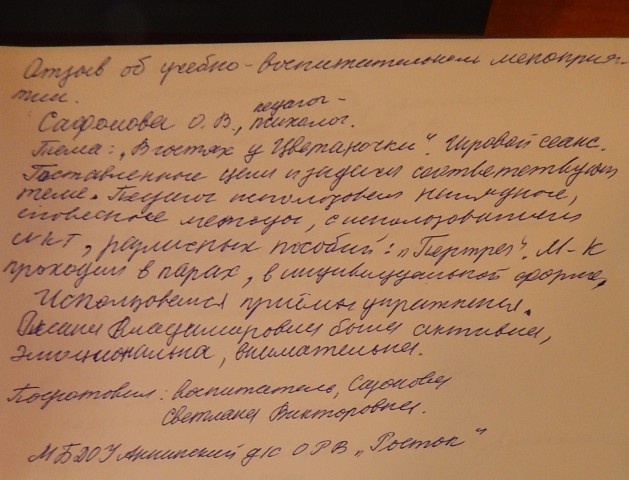 Отзыв об учебно-воспитательном мероприя-
тии.
Сафонова О. В., педагог-
психолог.
Тема: „В гостях у Цветаночки". Игровой сеанс.
Поставленные цели и задачи соответствуют
теме. Педагог использовал наглядные,
словесные методы, с использованием
ИКТ, различных пособий: „Портрет". М-К
проходил в парах, в индивидуальной форме.
Использовался приёмы упражнения.
Оксана Владимировна была активна,
эмоциональна, внимательна.
Подготовил: воспитатель,
Светлана Викторовна.
МБДОУ Аннинский д/с ОРВ „Росток"